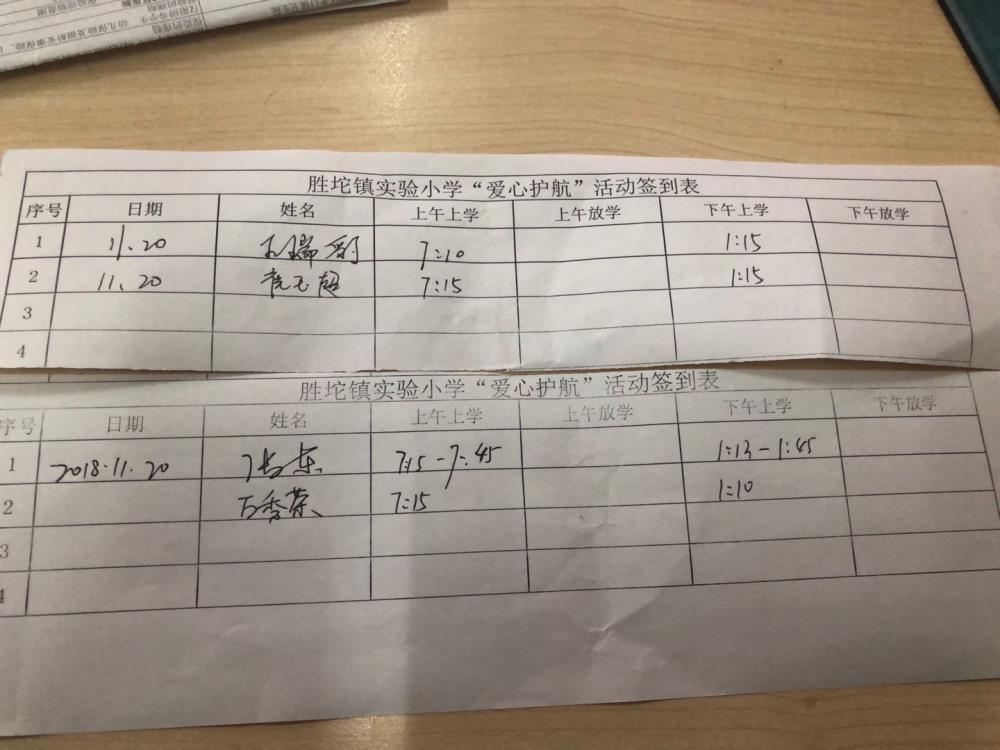 胜坨镇实验小学“爱心护航”活动签到表
序号 日期 姓名 上午上学 上午放学 下午上学 下午放学
1 11.20 7:10 1:15
2 11.20 7:15 1:15
3
4
胜坨镇实验小学“爱心护航”活动签到表
序号 日期 姓名 上午上学 上午放学 下午上学 下午放学
1 2018.11.20 7:15-7:45 1:13-1:45
2 万香荣 7:15 1:10
3
4